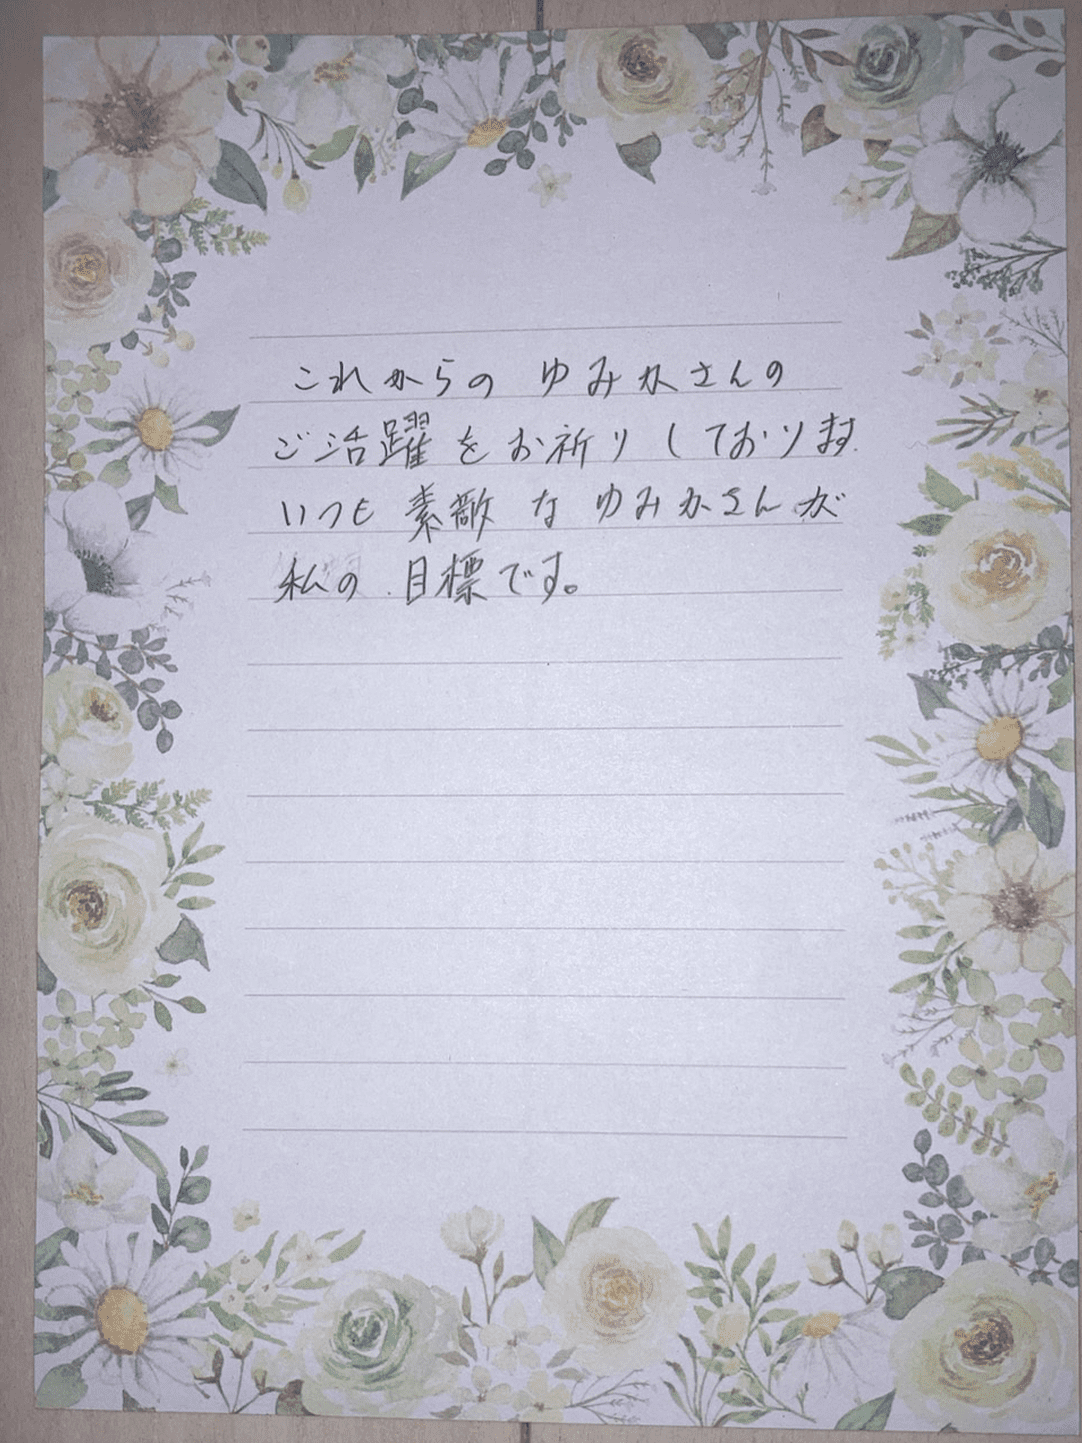 これからの ゆみかさんの
ご活躍をお祈りしております.
いつも素敵なゆみかさんが
私の目標です。